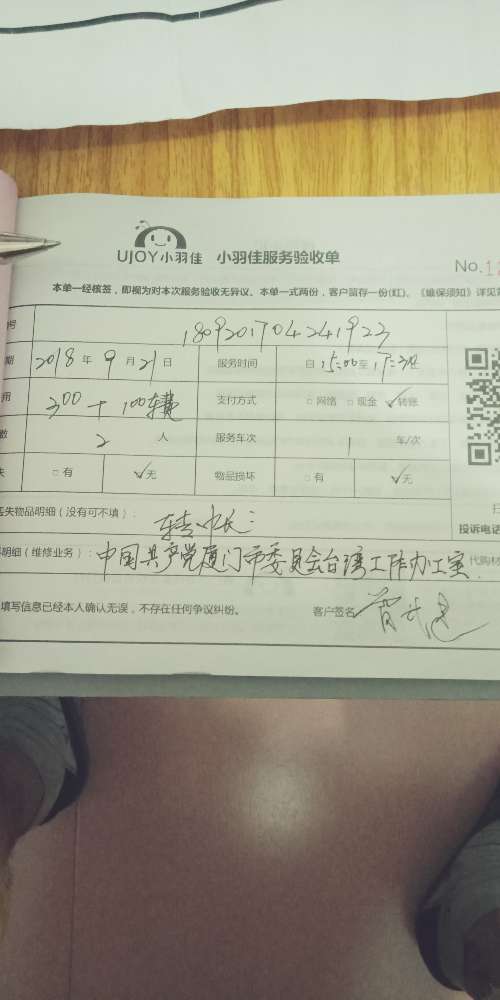 UJOY小羽佳 小羽佳服务验收单
No.12
本单一经核签，即视为对本次服务验收无异议。本单一式两份，客户留存一份(红)。《维保须知》详见背
号 1809201704241923
期 2018 年 9 月 21 日 服务时间 自 15:00 至 17:30
用 300+100车费 支付方式 □网络 □现金 ✓转账
数 2 人 服务车次 1 车/次
失 □有 ✓无 物品损坏 □有 ✓无
丢失物品明细（没有可不填）： 扫
投诉电话
明细（维修业务）：中国共产党厦门市委员会台湾工作办公室 代购材
填写信息已经本人确认无误，不存在任何争议纠纷。 客户签名